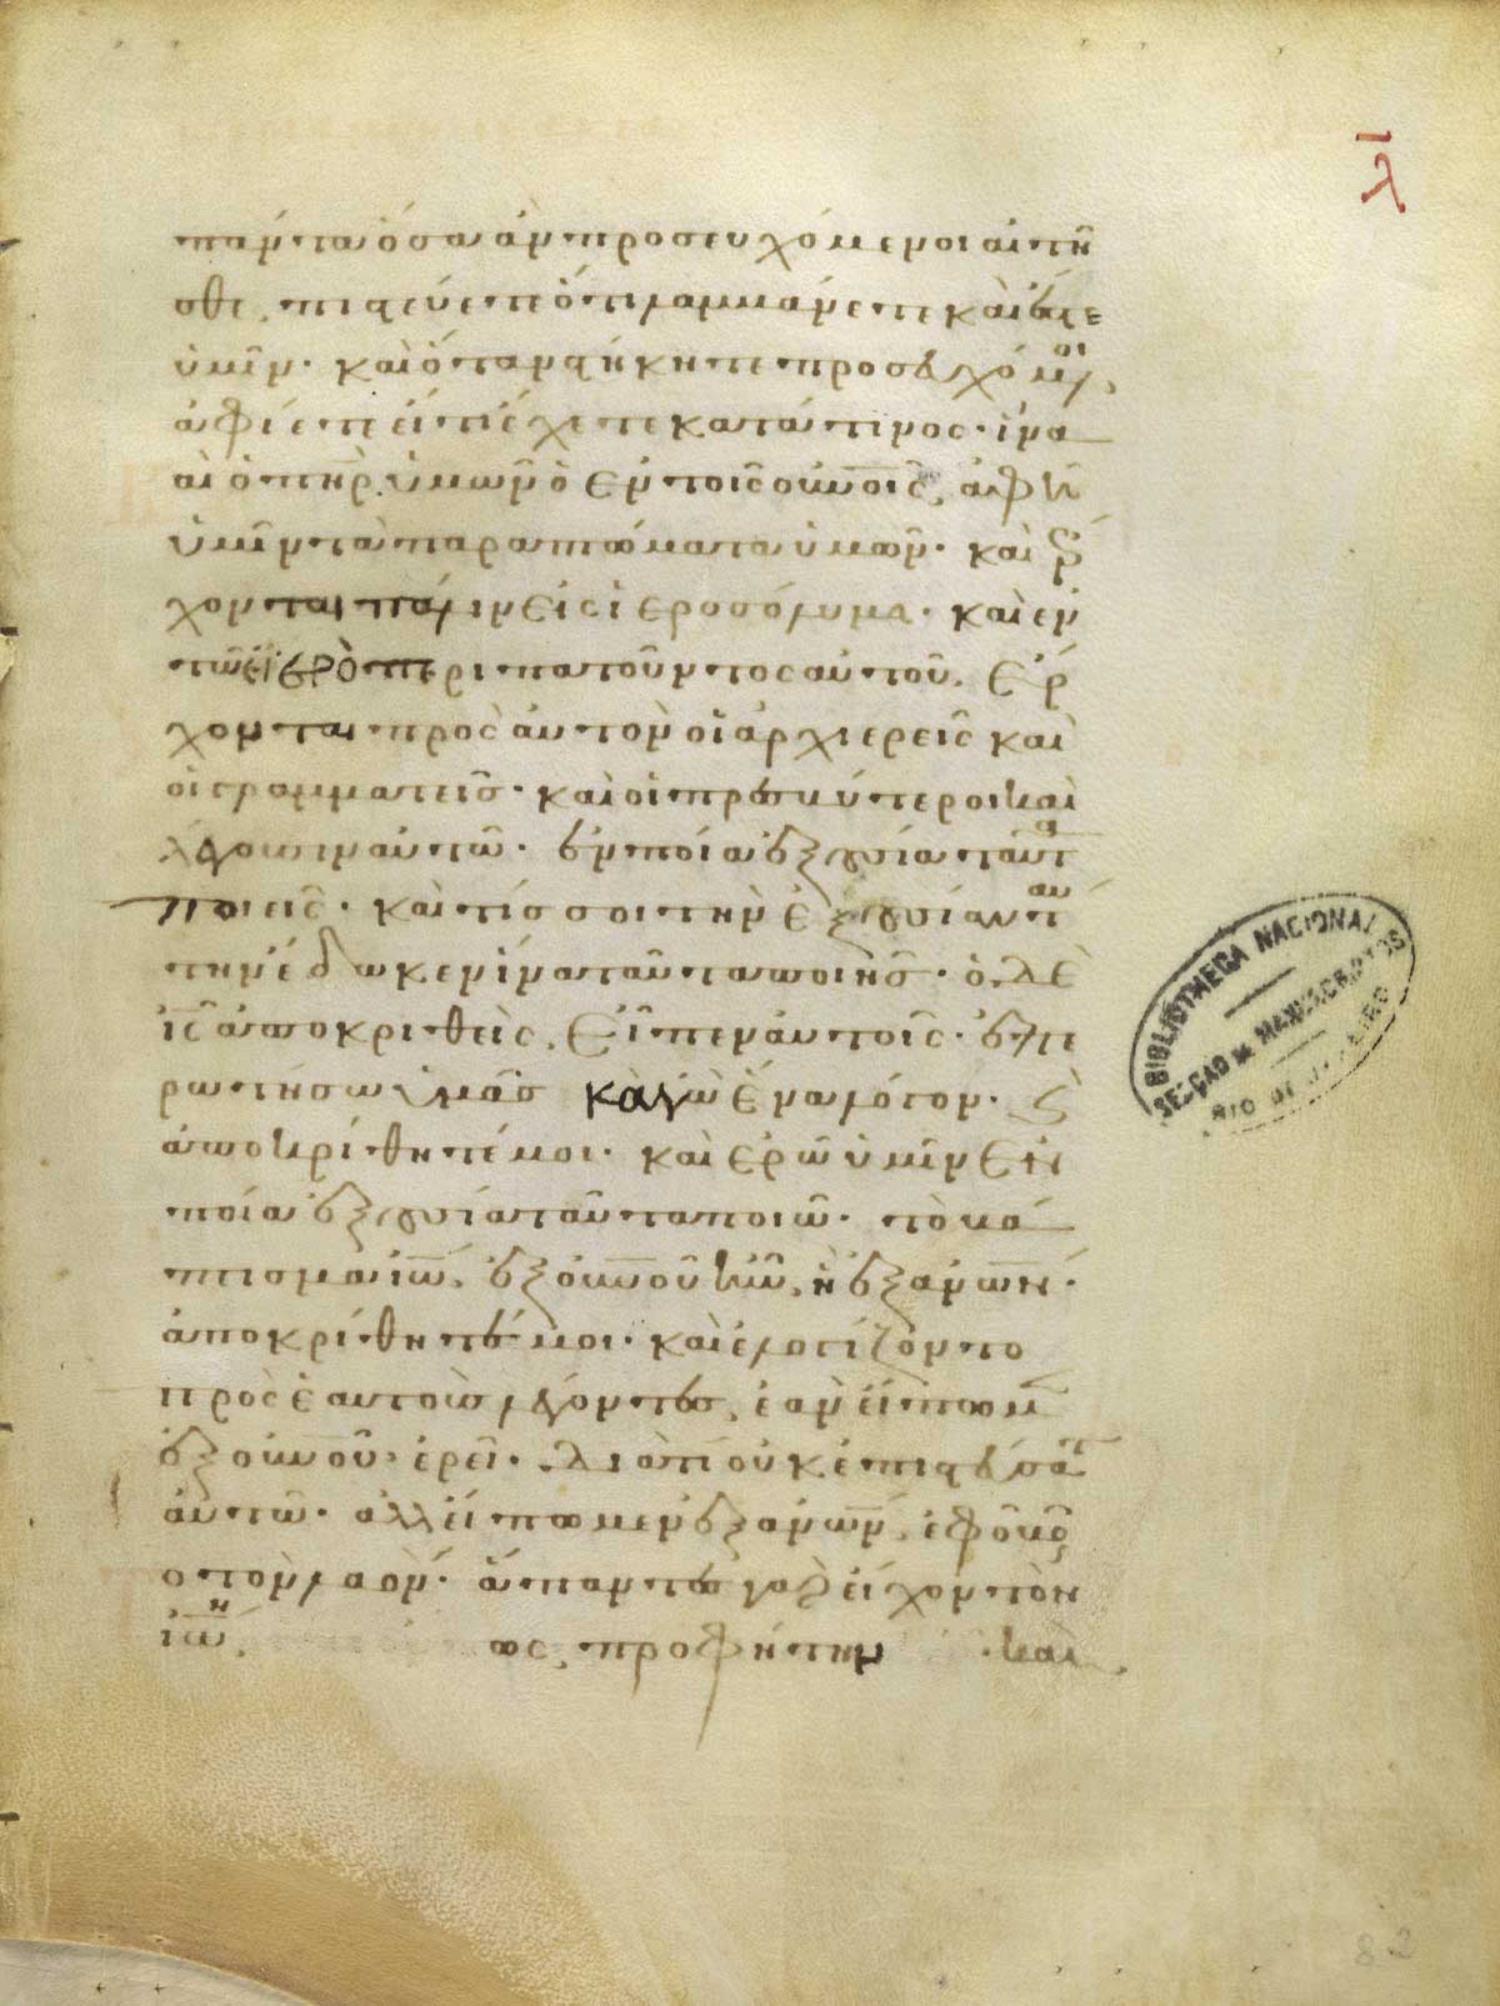 λ̅
πάνται ὅσα ἂν προσευχόμενοι αἰτῆ
σθε, πιστεύετε ὅτι λαμμάνετε καὶ ἔσται
ὑμῖν. καὶ ὅταν στήκητε προσευχόμενοι,
ἀφίετε εἴ τι ἔχετε κατά τινος. ἵνα
καὶ ὁ πηρ ὑμῶν ὁ ἐν τοῖς οὐνοις, ἀφῆ
ὑμῖν τὰ παραπτώματα ὑμῶν. καὶ ἔρ
χονται πάλιν εἰς ἱεροσόλυμα. καὶ ἐν
τῶ ἱερῶ περιπατοῦντος αὐτοῦ. ἔρ
χονται πρὸς αὐτὸν οἱ ἀρχιερεῖς καὶ
οἱ γραμματεῖς. καὶ οἱ πρεσβύτεροι καὶ
λέγουσιν αὐτῶ. ἐν ποία ἐξουσία ταῦτα
ποιεῖς. καὶ τίς σοι τὴν ἐξουσίαν ταύ
την ἔδωκεν ἵνα ταῦτα ποιῆς. ὁ δὲ
ις ἀποκριθεὶς, εἶπεν αὐτοῖς. ἐπε
ρωτήσω ὑμᾶς καγὼ ἕνα λόγον. καὶ
ἀποκρίθητέ μοι. καὶ ἐρῶ ὑμῖν ἐν
ποία ἐξουσία ταῦτα ποιῶ. τὸ βά
πτισμα ἰω, ἐξ οὐνοῦ ἦν, ἢ ἐξ ανων.
ἀποκρίθητέ μοι. καὶ ἐλογίζοντο
πρὸς ἑαυτοὺς λέγοντες, ἐὰν εἴπωμεν
ἐξ οὐνοῦ, ἐρεῖ. διατί οὐκ ἐπιστεύσατε
αὐτῶ. ἀλλ εἴπωμεν ἐξ ανων, ἐφοβοῦν
το τὸν λαόν. ἅπαντες γὰρ εἶχον τὸν
ἰωην, ὡς προφήτην. καὶ
BIBLIOTHECA NACIONAL
SECÇÃO DE MANUSCRIPTOS
RIO DE JANEIRO
82